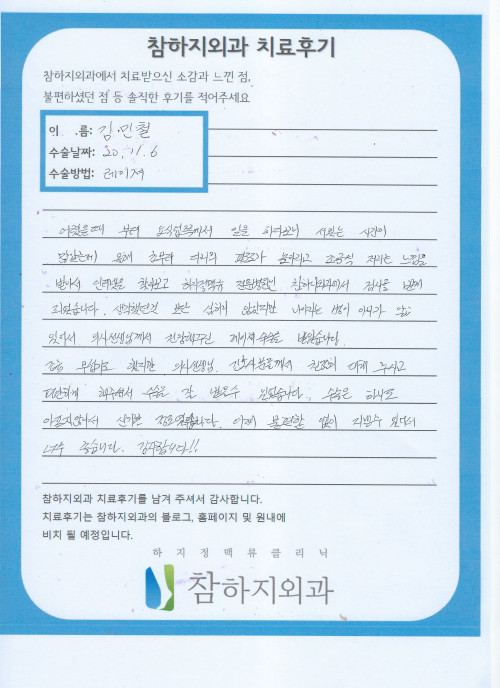 참하지외과 치료후기
참하지외과에서 치료받으신 소감과 느낀 점,
불편하셨던 점 등 솔직한 후기를 적어주세요
이 름: 김민철
수술날짜: 20, 11, 6
수술방법: 레이저
어렸을때 부터 요식업쪽에서 일을 하다보니 서있는 시간이
많았는데 올해 다리의 조금씩 저리는 느낌을
받아서 인터넷을 찾아보고 하지정맥류 전문병원인 참하지외과에서 검사를 받게
되었습니다. 생각했던것 보단 심하지 않았지만
있어서 의사선생님께서 권장해주신 레이저수술을 받았습니다.
조금 무섭기도 했지만 의사선생님, 간호사분들께서 친절히 대해 주시고
편안하게 해주셔서 수술을 잘 받을수 있었습니다. 수술은 하나도
아프지않아서 신기한 정도였습니다. 이제 불편함 없이 지낼수 있다니
너무 좋습니다. 감사합니다!!
참하지외과 치료후기를 남겨 주셔서 감사합니다.
치료후기는 참하지외과의 블로그, 홈페이지 및 원내에
비치 될 예정입니다.
하지정맥류클리닉
참하지외과